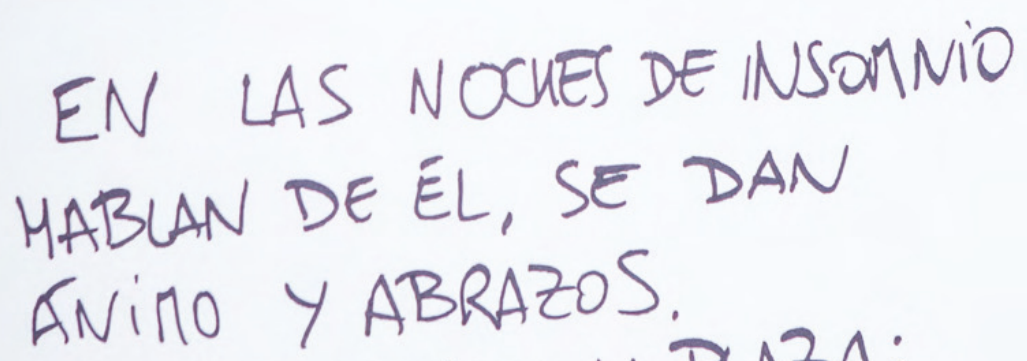 EN LAS NOCHES DE INSOMNIO
HABLAN DE ÉL, SE DAN
ÁNIMO Y ABRAZOS.